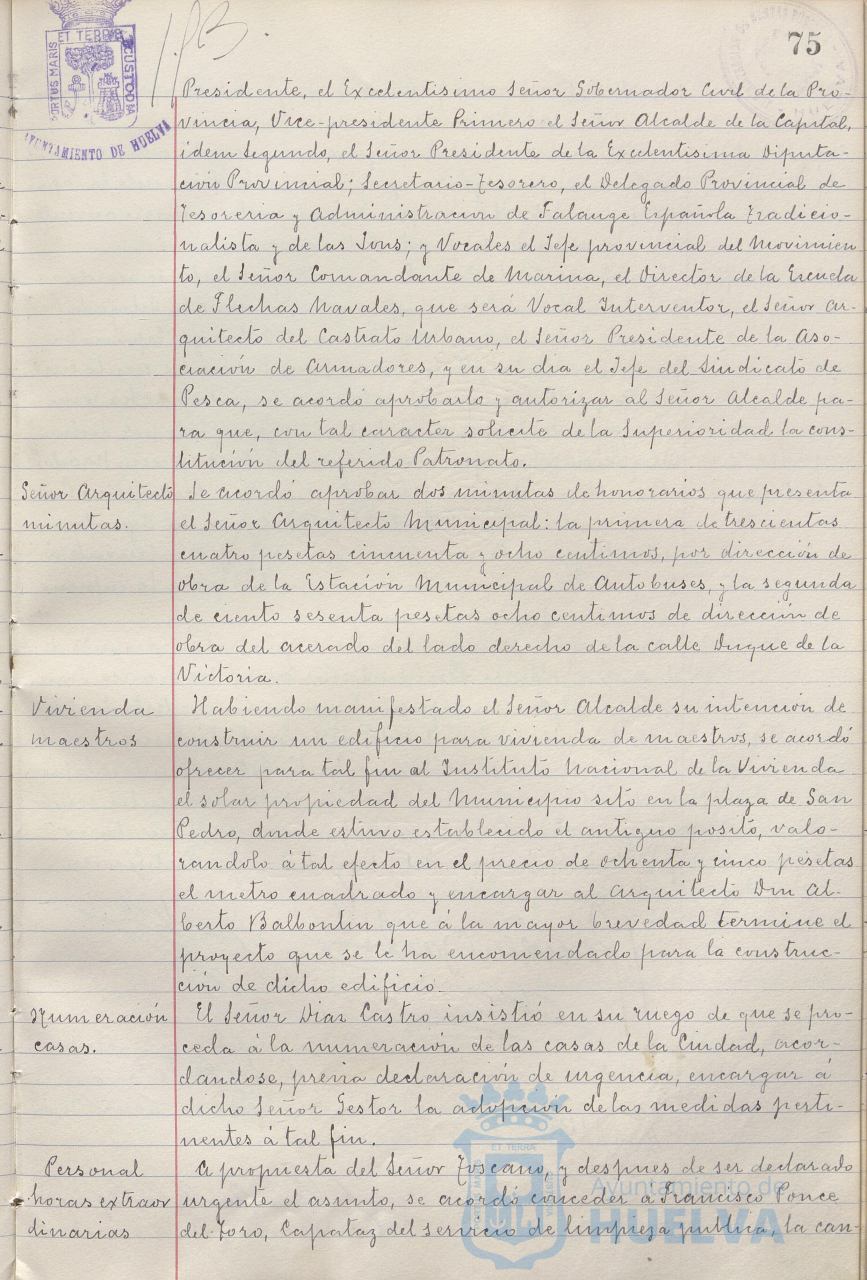 75
PORTUS MARIS ET TERRE CUSTODIA
AYUNTAMIENTO DE HUELVA
Presidente, el Excelentisimo Señor Gobernador Civil de la Pro-
vincia, Vice-presidente Primero el Señor Alcalde de la Capital,
idem Segundo, el Señor Presidente de la Excelentisima Diputa-
ción Provincial; Secretario-Tesorero, el Delegado Provincial de
Tesoreria y Administracion de Falange Española Tradicio-
nalista y de las Jons; y Vocales el Jefe provincial del Movimien
to, el Señor Comandante de Marina, el Director de la Escuela
de Flechas Navales, que será Vocal Interventor, el Señor Ar-
quitecto del Castrato Urbano, el Señor Presidente de la Aso-
ciación de Armadores, y en su dia el Jefe del Sindicato de
Pesca, se acordó aprobarlo y autorizar al Señor Alcalde pa-
ra que, con tal caracter solicite de la Superioridad la cons-
titución del referido Patronato.
Señor Arquitecto
minutas.
Se acordó aprobar dos minutas de honorarios que presenta
el Señor Arquitecto Municipal: la primera de trescientas
cuatro pesetas cincuenta y ocho centimos, por dirección de
obra de la Estación Municipal de Autobuses, y la segunda
de ciento sesenta pesetas ocho centimos de dirección de
obra del acerado del lado derecho de la calle Duque de la
Victoria.
Vivienda
maestros
Habiendo manifestado el Señor Alcalde su intención de
construir un edificio para vivienda de maestros, se acordó
ofrecer para tal fin al Instituto Nacional de la Vivienda
el solar propiedad del Municipio sito en la plaza de San
Pedro, donde estuvo establecido el antiguo posito, valo-
randolo á tal efecto en el precio de ochenta y cinco pesetas
el metro cuadrado y encargar al Arquitecto Don Al-
berto Balbontin que á la mayor brevedad termine el
proyecto que se le ha encomendado para la construc-
ción de dicho edificio.
Numeración
casas.
El Señor Diaz Castro insistió en su ruego de que se pro-
ceda á la numeración de las casas de la Ciudad, acor-
dandose, previa declaración de urgencia, encargar á
dicho Señor Gestor la adopción de las medidas perti-
nentes á tal fin.
Personal
horas extraor
dinarias
A propuesta del Señor Toscano, y despues de ser declarado
urgente el asunto, se acordó conceder a Francisco Ponce
del Toro, Capataz del servicio de limpieza publica, la can-
Ayuntamiento de
HUELVA